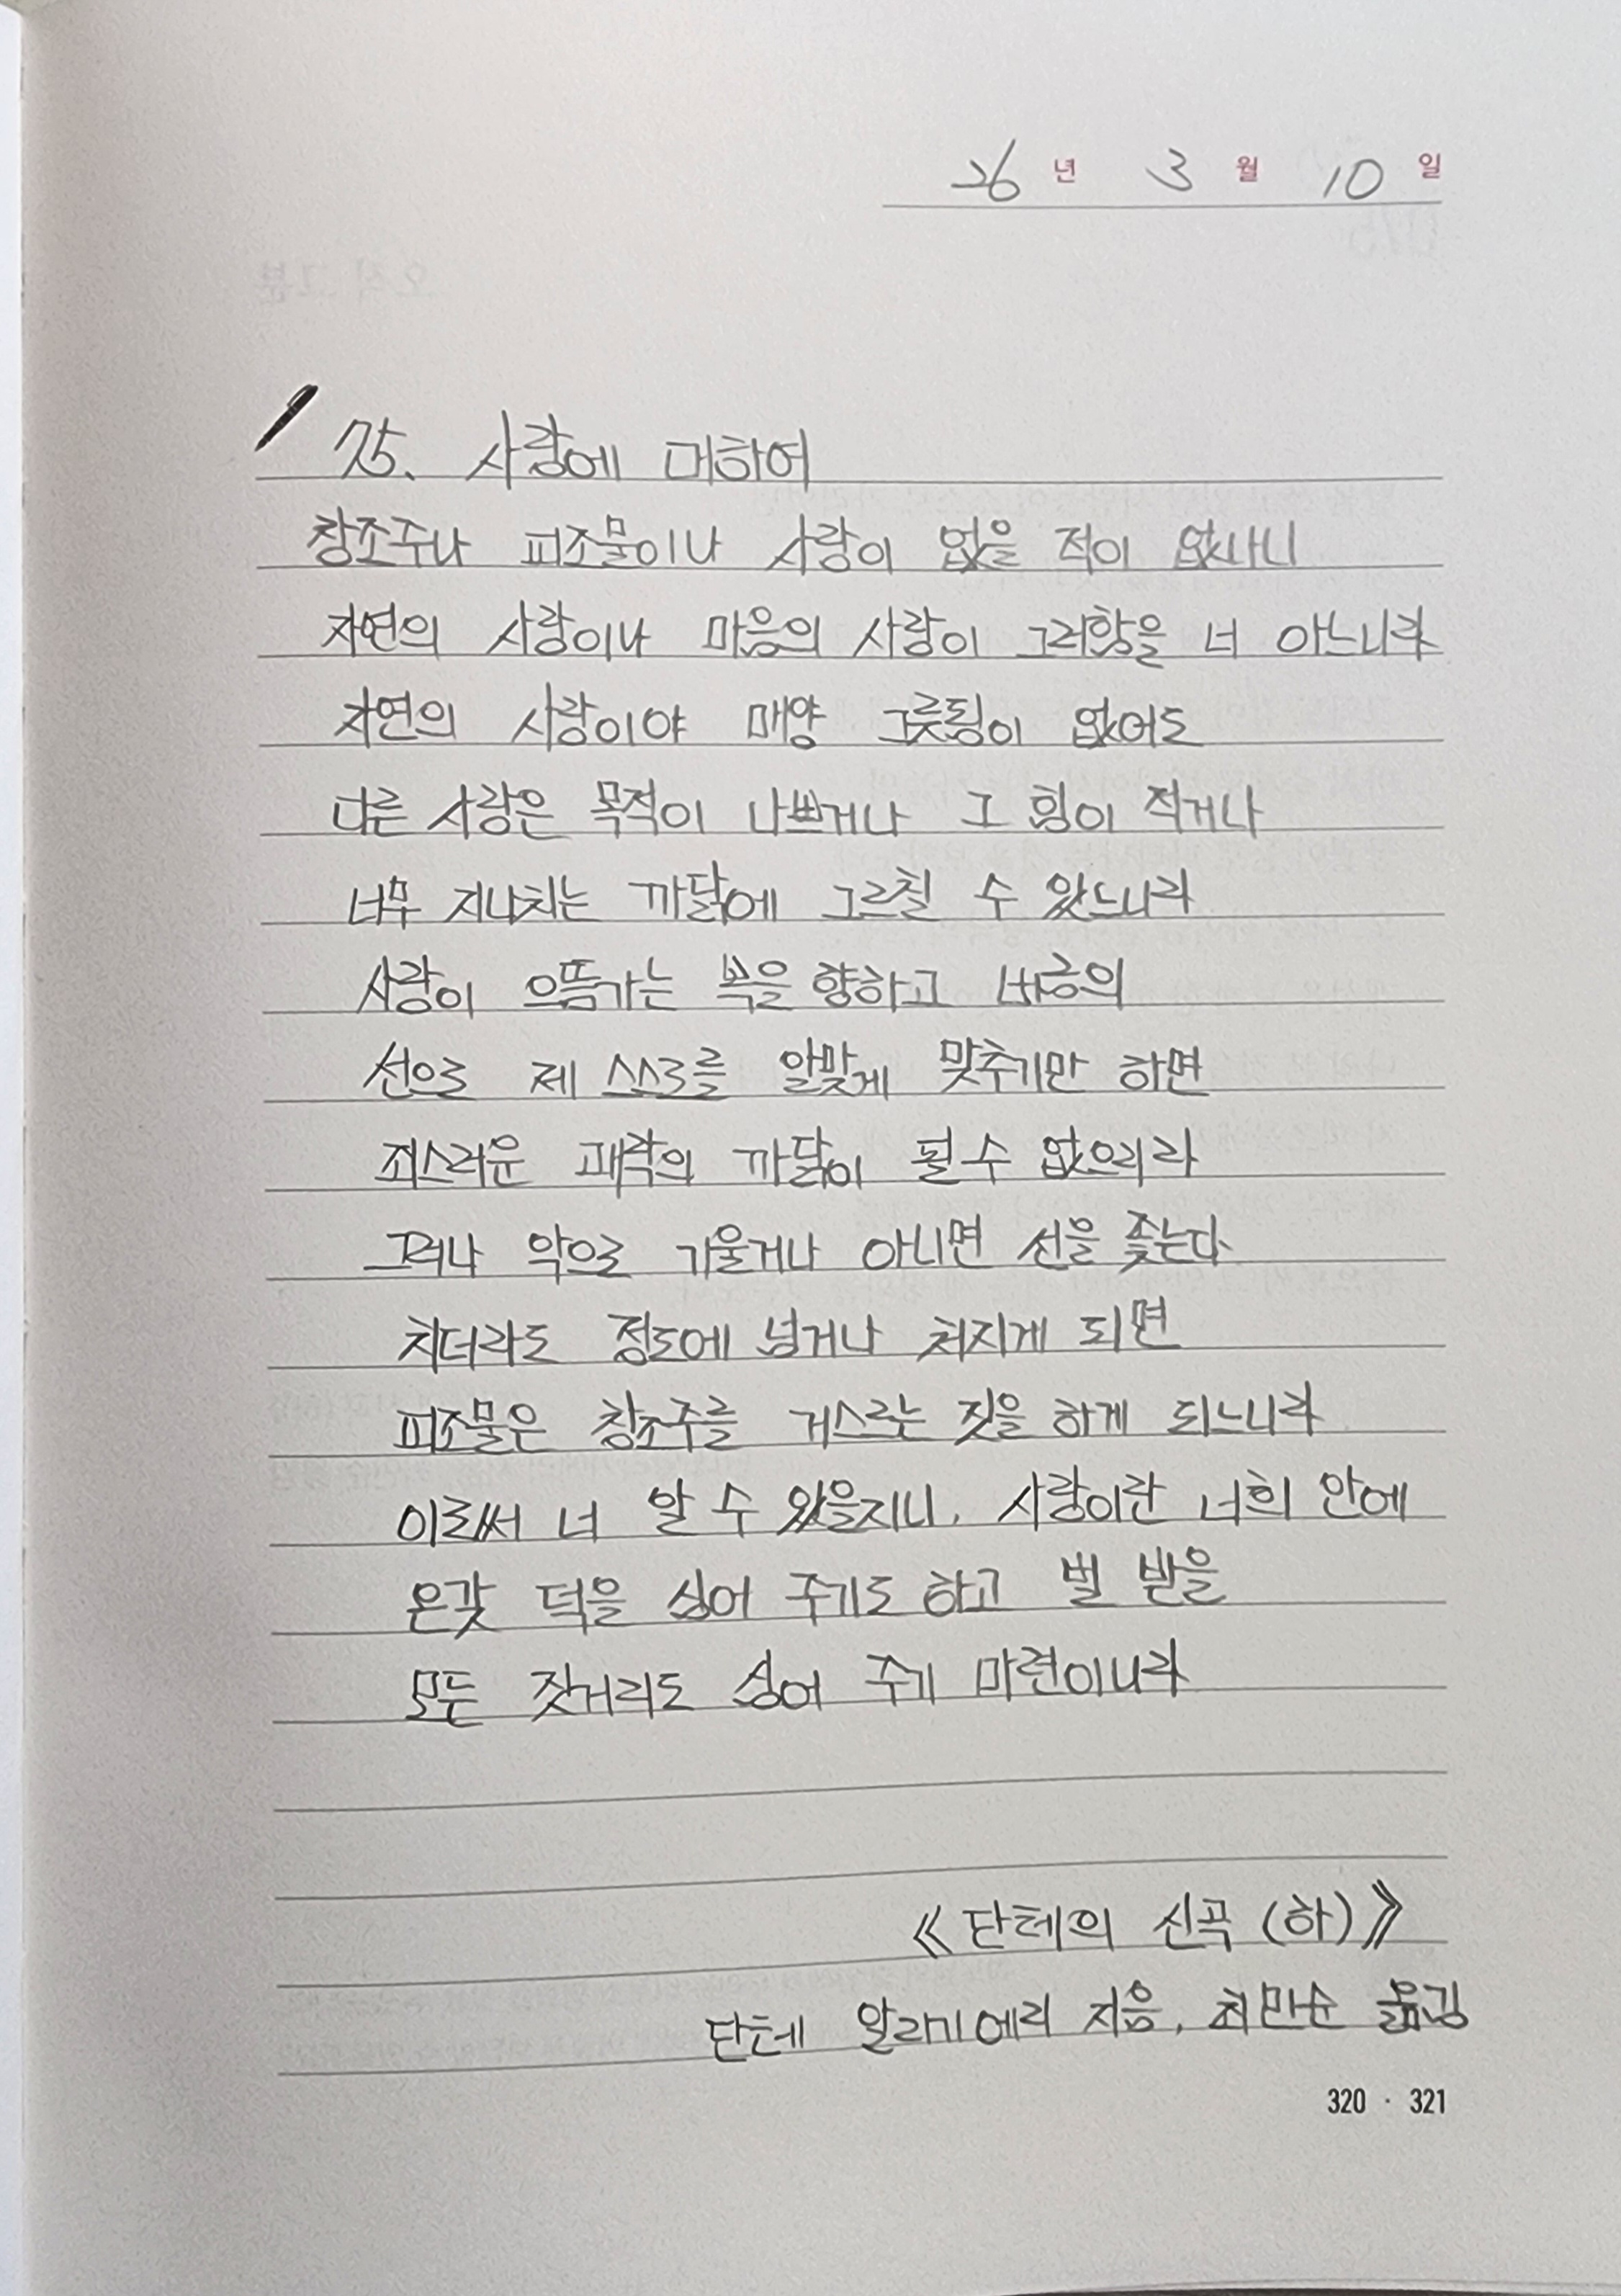 26 년 3 월 10 일
75. 사랑에 대하여
창조주나 피조물이나 사랑이 없을 적이 없나니
자연의 사랑이나 마음의 사랑이 그러함을 너 아느니라
자연의 사랑이야 매양 그릇됨이 없어도
다른 사랑은 목적이 나쁘거나 그 힘이 적거나
너무 지나치는 까닭에 그르칠 수 있느니라
사랑이 으뜸가는 복을 향하고 버금의
선으로 제 스스로를 알맞게 맞추기만 하면
죄스러운 쾌락의 까닭이 될 수 없으리라
그러나 악으로 기울거나 아니면 선을 좇는다
치더라도 정도에 넘거나 처지게 되면
피조물은 창조주를 거스르는 짓을 하게 되느니라
이로써 너 알 수 있을지니, 사랑이란 너희 안에
온갖 덕을 심어 주기도 하고 벌 받을
모든 짓거리도 심어 주기 마련이니라
《단테의 신곡 (하)》
단테 알리기에리 지음, 최민순 옮김
320 · 321